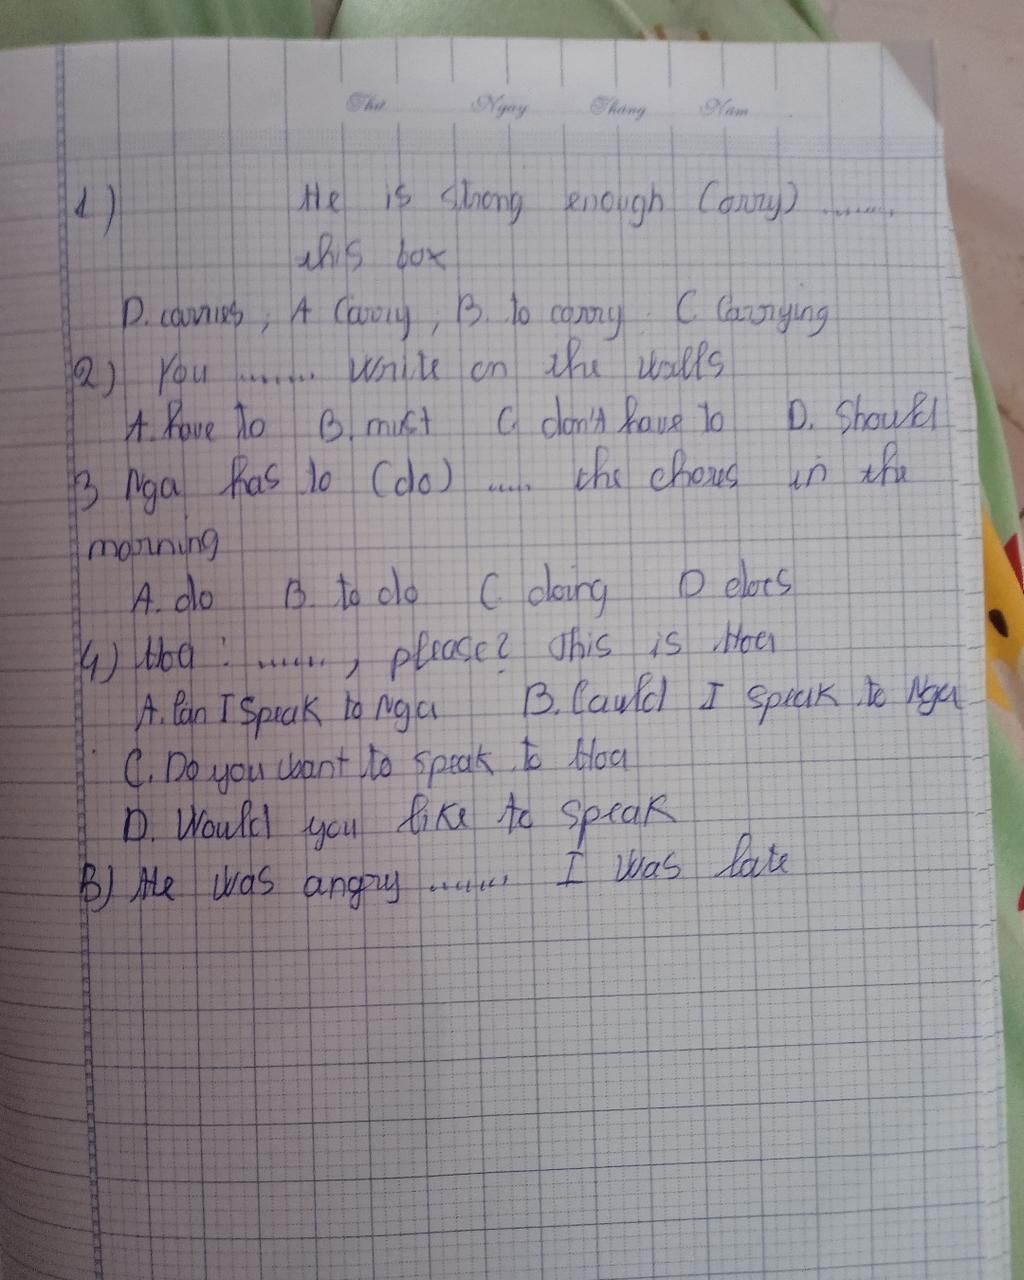 Thứ Ngày Tháng Năm
1) He is strong enough (carry) ........
this box
D. carries, A Carry, B. to carry. C Carrying
2) You ........ write on the walls
A. have to B. must C don't have to D. Should
3 Nga has to (do) ..... the chores in the
morning
A. do B. to do C doing D does
4) Hoa : ......., please? This is Hoa
A. Can I Speak to Nga B. Could I speak to Nga
C. Do you want to speak to Hoa
D. Would you like to speak
B) He was angry ........ I was late